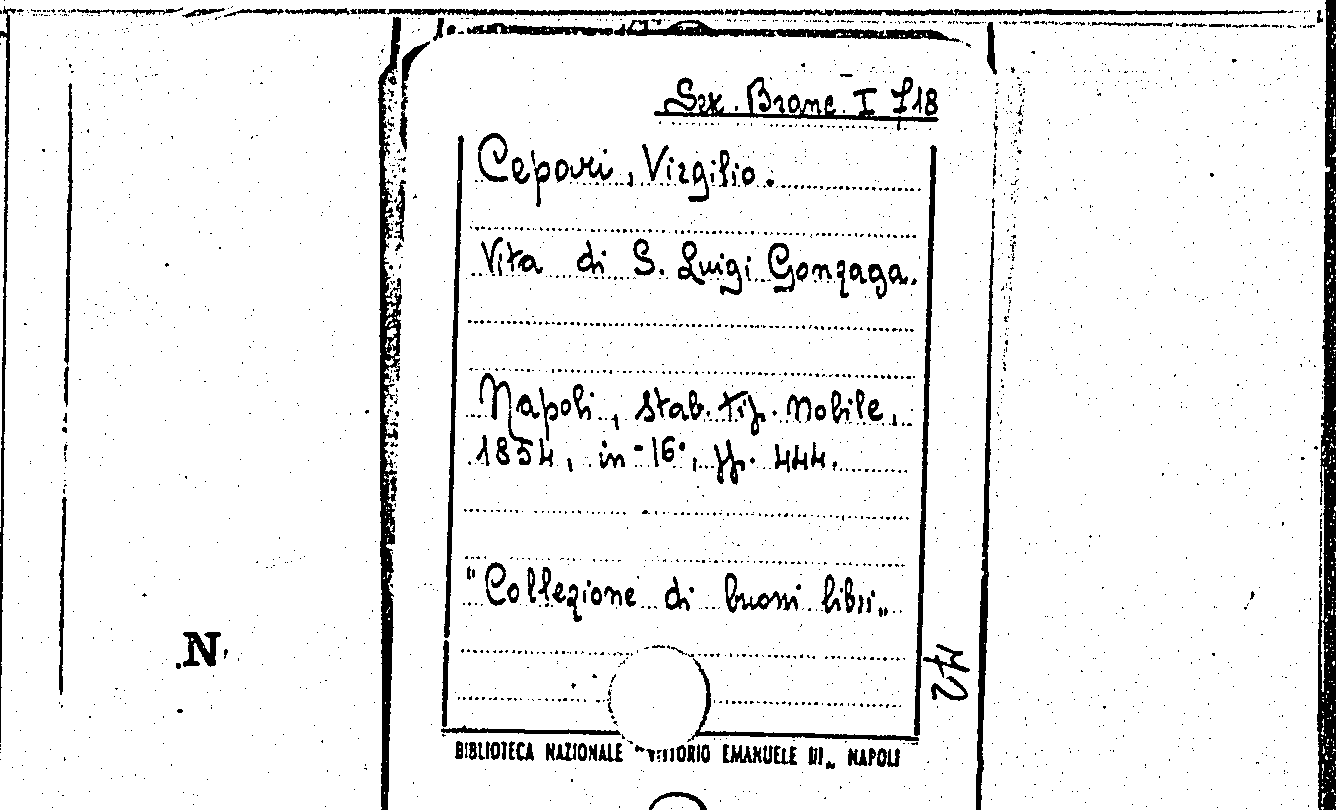 Sez. Branc. I F 18
Cepari, Virgilio.
Vita di S. Luigi Gonzaga.
Napoli, stab. tip. Nobile,
1854, in-16°, pp. 444.
"Collezione di buoni libri„
N
42
BIBLIOTECA NAZIONALE "VITTORIO EMANUELE III„ NAPOLI